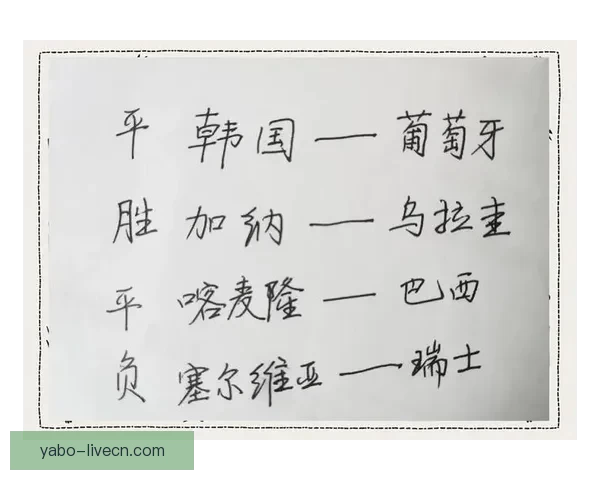 平 韩国 — 葡萄牙
胜 加纳 — 乌拉圭
平 喀麦隆 — 巴西
负 塞尔维亚 — 瑞士
yabo-livecn.com